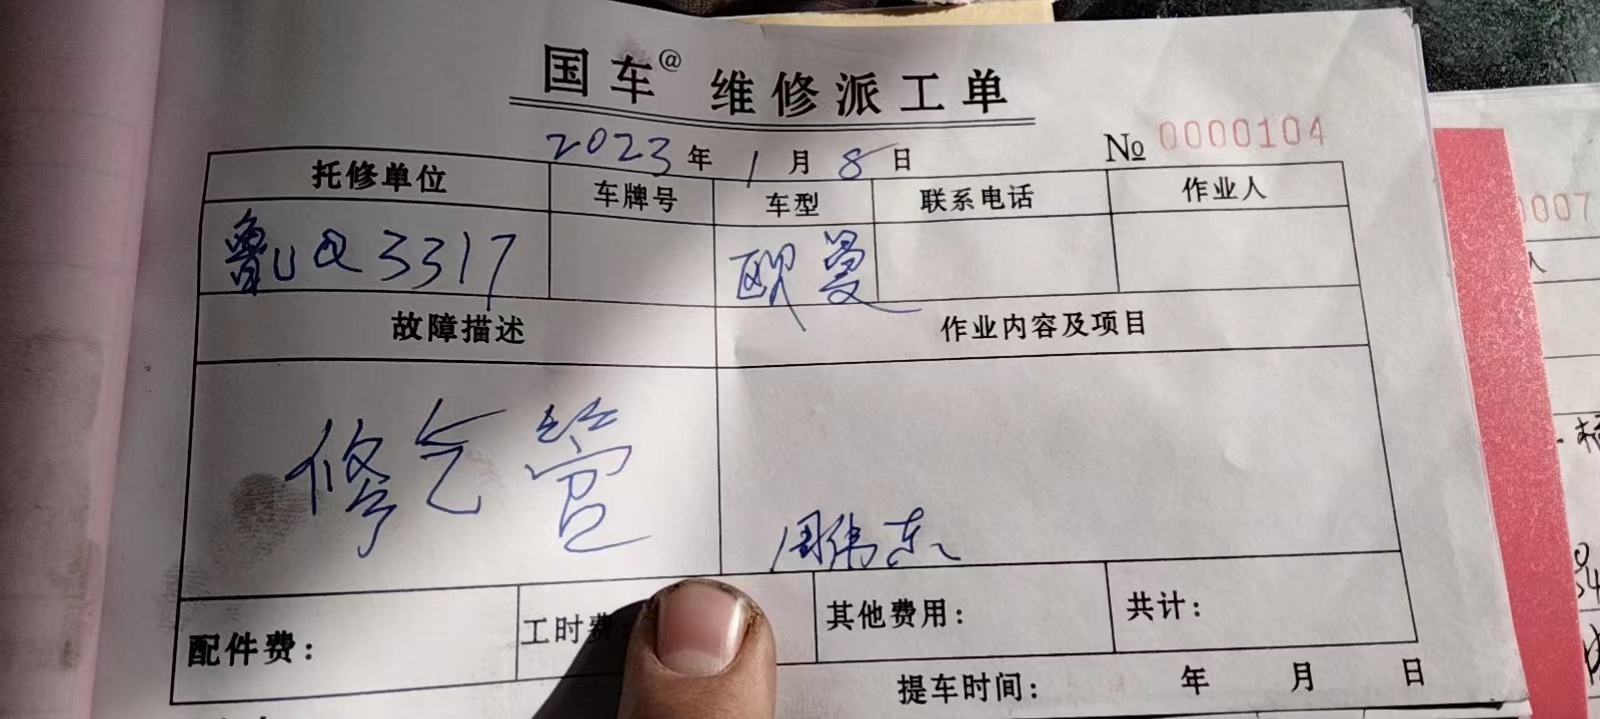 国车@ 维修派工单
2023年1月8日 No 0000104
托修单位 车牌号 车型 联系电话 作业人
鲁Q3317 欧曼
故障描述 作业内容及项目
修气管
周伟东
配件费: 工时费 其他费用: 共计:
提车时间: 年 月 日
0007